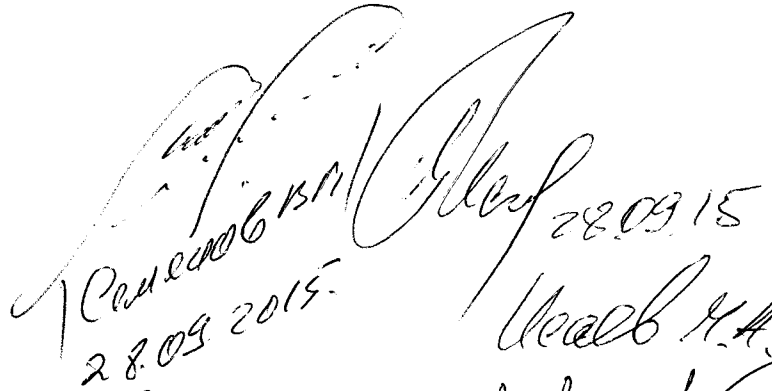 Семенов В.П.
28.09.2015.
28.09.15
Исаев М.А.